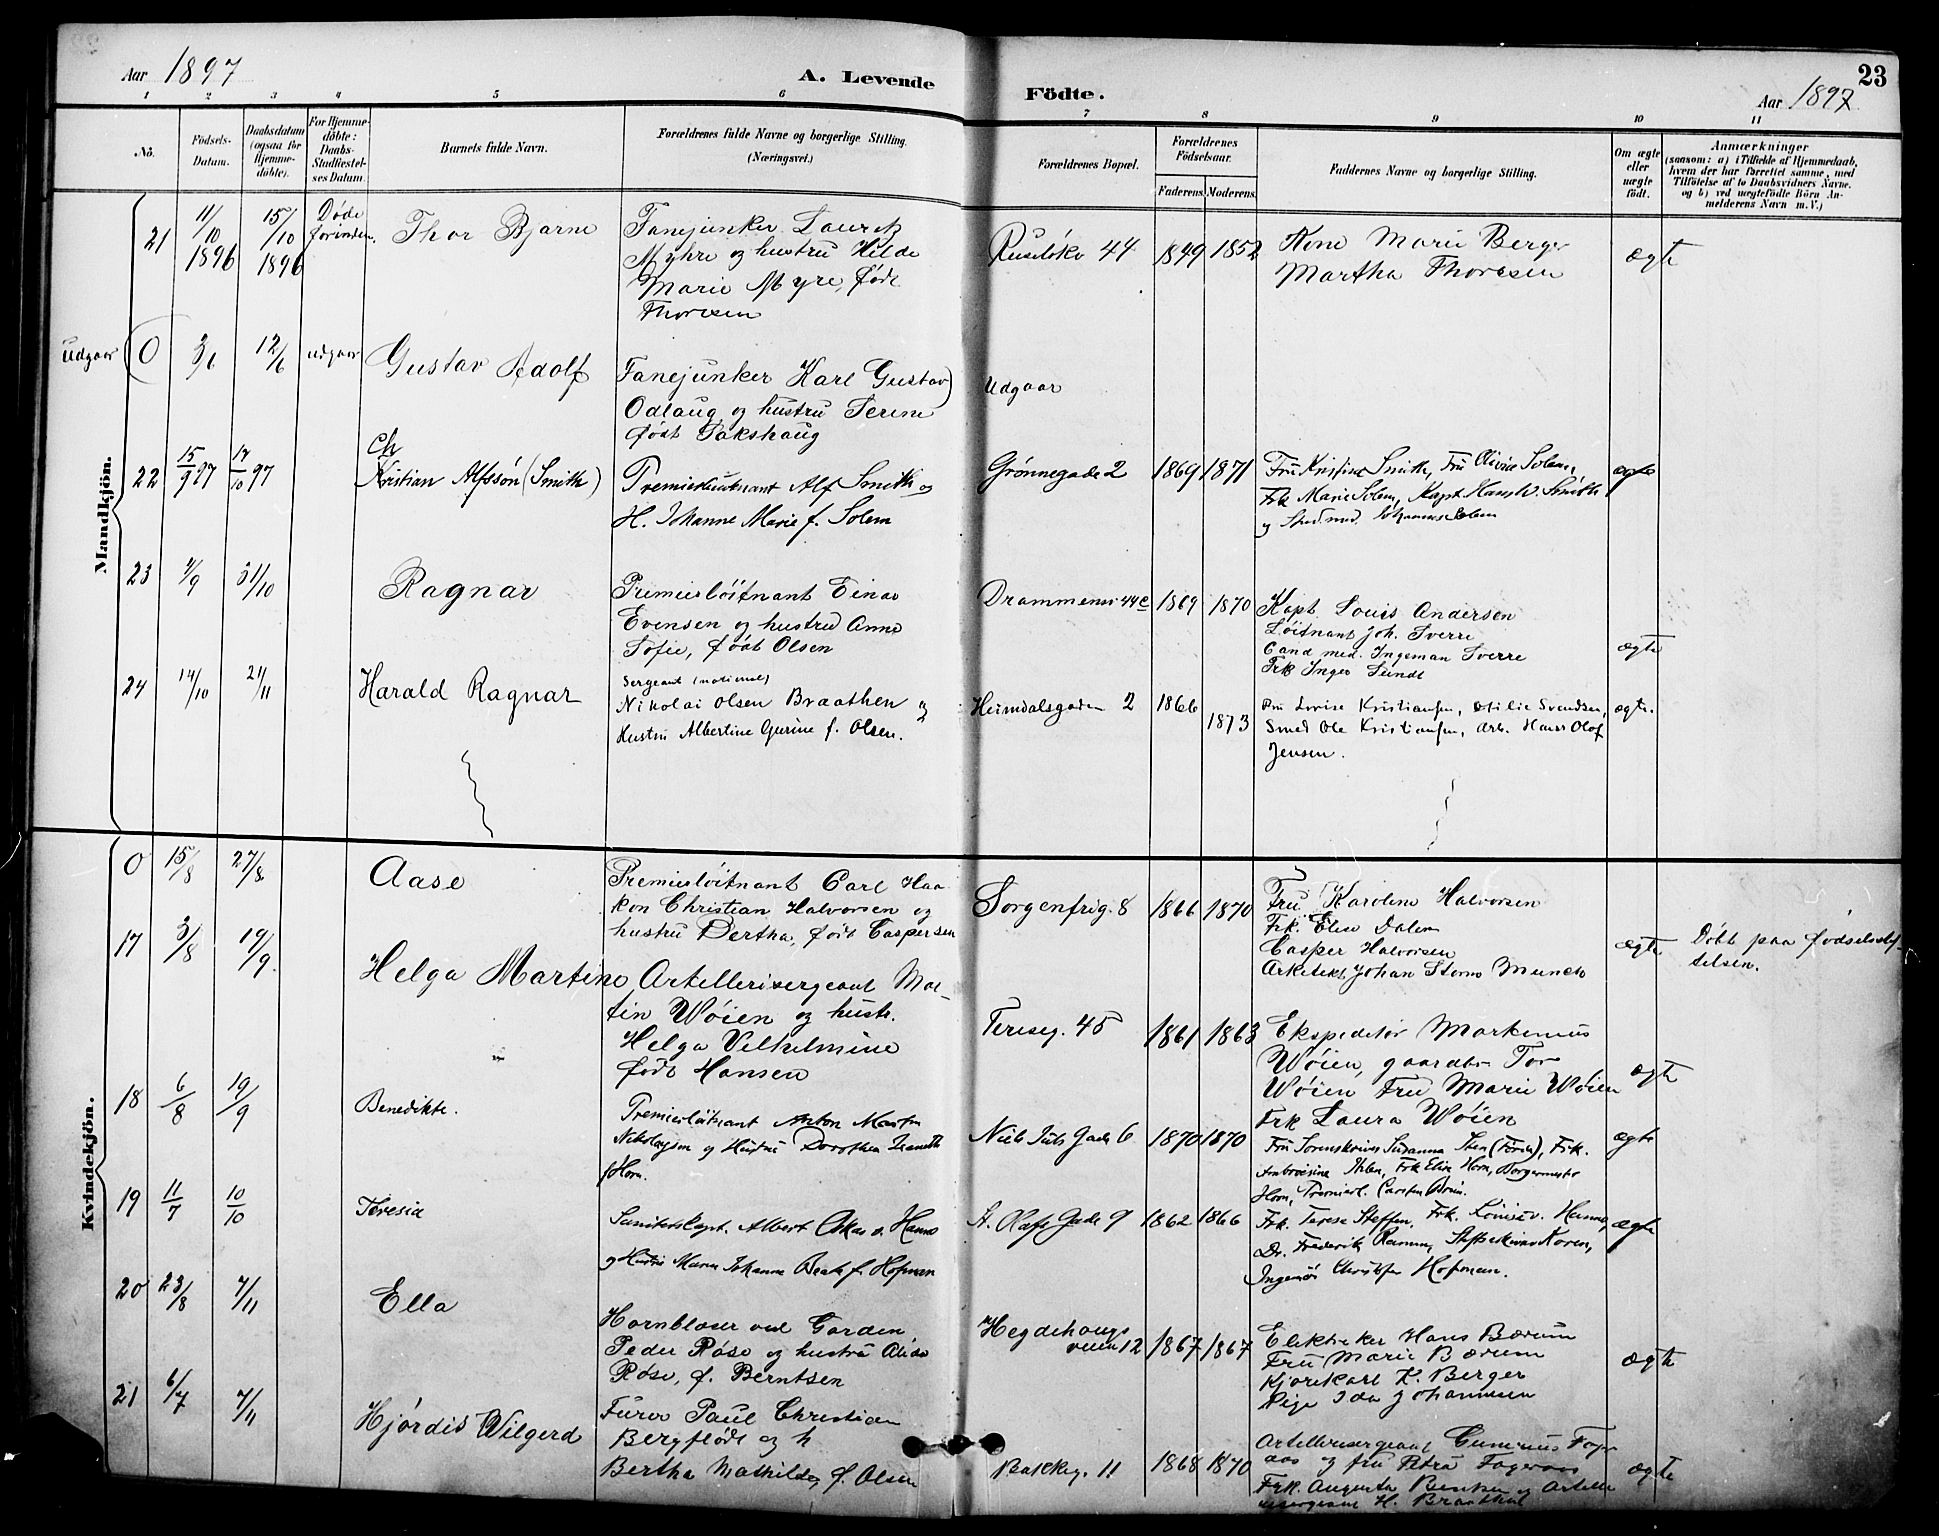 Aar 1897
A. Levende
Fødte.
Aar 1897
23
1 2 3 4 5 6 7 8 9 10 11
No.
Fødsels-Datum.
Daabsdatum (ogsaa for Hjemme-døbte).
For Hjemme-døbte: Daabs-Stadfæstel-ses Datum.
Barnets fulde Navn.
Forældrenes fulde Navne og borgerlige Stilling.
(Næringsvei.)
Forældrenes Bopæl.
Forældrenes Fødselsaar.
Faderens. Moderens.
Faddernes Navne og borgerlige Stilling.
Om ægte eller uægte født.
Anmærkninger
(saasom: a) i Tilfælde af Hjemmedaab,
hvem der har forrettet samme, med
Tilføielse af to Daabsvidners Navne.
og b) ved uægtefødte Børn An-
melderens Navn m. V.)
Mandkjøn.
21 11/10 1896 15/10 1896 Døde forinden. Thor Bjarne
Fanejunker Lauretz
Myhre og hustru Hilde
Marie Myre, født
Thoresen
Ruseløkv 44 1849 1852
Kone Marie Berger
Martha Thoresen
ægte
Udgaar 0 3/6 12/6 udgaar Gustav Adolf
Fanejunker Karl Gustav
Odlaug og hustru Serine
født Sakshaug
Udgaar
22 15/9 97 17/10 97 Ch Kristian Alfssøn (Smith)
Premierløitnant Alf Smith og
H. Johanne Marie f. Solem
Grønnegade 2 1869 1871
Fru Kristine Smith, Fru Olivia Solem,
Frk Marie Solem, Kapt Hans W. Smith
og Stud. med. Johannes Solem
ægte
23 4/9 31/10 Ragnar
Premierløitnant Einar
Evensen og hustru Anne
Sofie, født Olsen
Drammensv 44c 1869 1870
Kapt. Louis Andersen
Løitnant Joh. Sverre
Cand med. Ingeman Sverre
Frk Inger Lunde
ægte
24 14/10 21/11 Harald Ragnar
Sergeant (national)
Nikolai Olsen Braathen og
Hustru Albertine Gurine f. Olsen.
Heimdalsgaden 2 1866 1873
Fru Lovise Kristiansen, Otilie Svendsen,
Smed Ole Kristiansen, Arb. Hans Olof
Jensen.
ægte.
Kvindekjøn.
0 15/8 27/8 Aase
Premierløitnant Carl Haa-
kon Christian Halvorsen og
hustru Bertha, født Caspersen
Sorgenfrig. 8 1866 1870
Fru Karoline Halvorsen
Frk. Elise Dalen
Casper Halvorsen
Arkitekt Johan Storm Munch
ægte
Døbt paa fødselsstif-
telsen.
17 3/8 19/9 Helga Martine
Artellerisergeant Mar-
tin Wøien og hustr.
Helga Vilhelmine
født Hansen
Tereseg. 45 1861 1863
Ekspeditør Markenius
Wøien, gaardbr. Tor
Wøien Fru Marie Wøien
Frk Laura Wøien
ægte
18 6/8 19/9 Benedikte.
Premierløitnant Anton Martin
Nikolaysen og Hustru Dorothea
f Horn.
Niels Juls Gade 6 1870 1870
Fru Sorenskriver Susanna Sten, Frk.
Frk Elise Horn, Borgermester
Horn, Carsten Bruun.
ægte
19 11/7 10/10 Teresia
Albert Oskar v. Hanno
og Hustru Johanne Beate f. Hofman
St. Olafs Gade 9 1862 1866
Frk. Terese Steffen, Frk. Louise v. Hanno,
Dr. Frederik Ramm, Koren,
Ingeniør Christofer Hofman.
ægte
20 23/8 7/11 Ella
Hornblæser ved Garden,
Peder Røse og hustru Alida
Røse, f. Berntsen
Hegdehaugs
veien 12 1867 1867
Elektriker Hans Bærum
Fru Marie Bærum
Kjørekarl K. Berger
Pige Ida Johannesen
ægte
21 6/7 7/11 Hjørdis Wilgerd
Furer Paul Christian
Bergfløдt og h
Bertha Mathilde, f. Olsen
Bakkeg. 11 1868 1870
Artellerisergeant Gunerius Fager-
aas og fru Petra Fageraas
Frk. Augusta og Artelle
risergeant H. Braathen
ægte